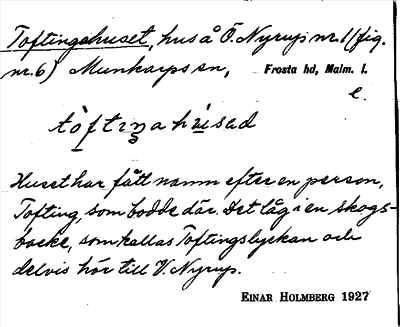 Toftingahuset, hus å Ö. Nyrup nr. 1 (fig.
nr. 6) Munkarps sn, Frosta hd, Malm. l.
e.
tòftiŋahúsad
Huset har fått namn efter en person,
Tofting, som bodde där. Det låg i en skogs-
backe, som kallas Toftingslyckan och
delvis hör till V. Nyrup.
EINAR HOLMBERG 1927